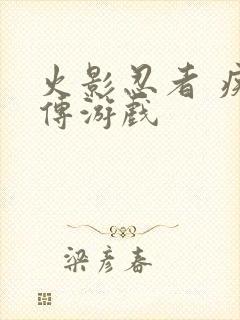 火影忍者 疾
傳游戲
梁彦春